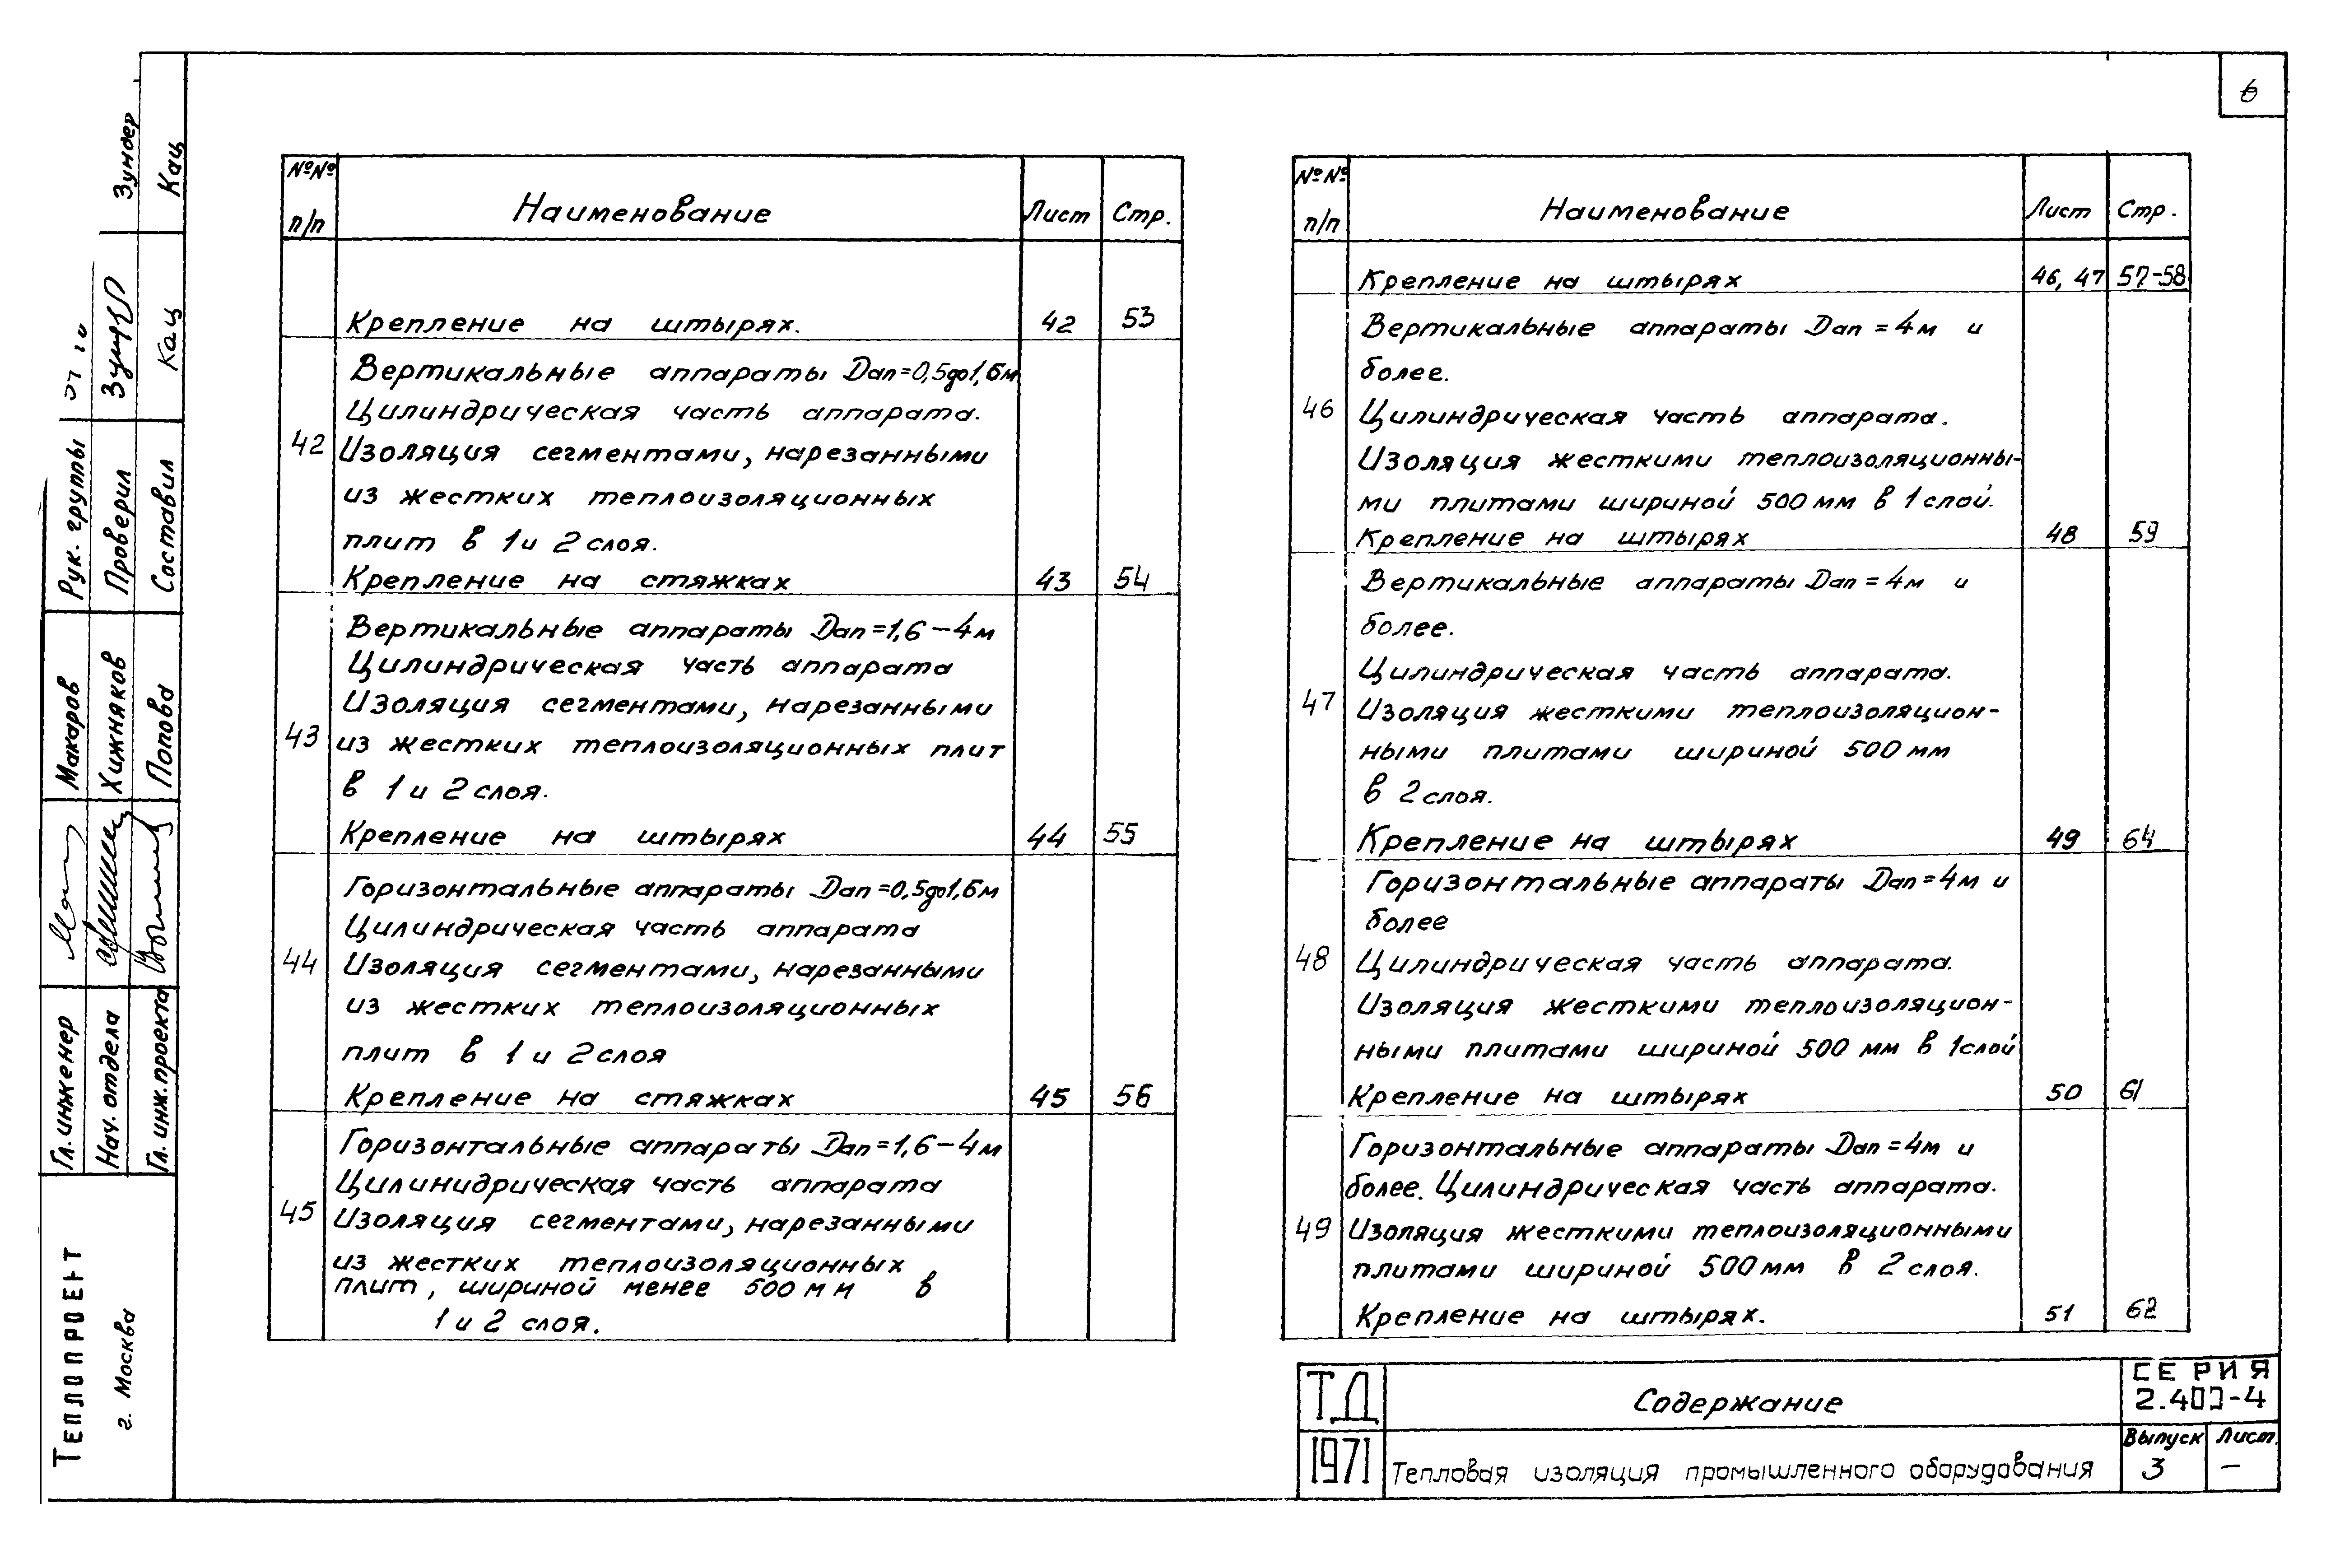 6
№№ п/п Наименование Лист Стр.
Крепление на штырях. 42 53
Вертикальные аппараты Dап=0,5до1,6м
Цилиндрическая часть аппарата.
42 Изоляция сегментами, нарезанными
из жестких теплоизоляционных
плит в 1 и 2 слоя.
Крепление на стяжках 43 54
Вертикальные аппараты Dап=1,6-4м
Цилиндрическая часть аппарата
Изоляция сегментами, нарезанными
43 из жестких теплоизоляционных плит
в 1 и 2 слоя.
Крепление на штырях 44 55
Горизонтальные аппараты Dап=0,5до1,6м
Цилиндрическая часть аппарата
44 Изоляция сегментами, нарезанными
из жестких теплоизоляционных
плит в 1 и 2 слоя
Крепление на стяжках 45 56
Горизонтальные аппараты Dап=1,6-4м
Цилинидрическая часть аппарата
45 Изоляция сегментами, нарезанными
из жестких теплоизоляционных
плит, шириной менее 500 мм в
1 и 2 слоя.
№№ п/п Наименование Лист Стр.
Крепление на штырях 46, 47 57-58
Вертикальные аппараты Dап=4м и
более.
46 Цилиндрическая часть аппарата.
Изоляция жесткими теплоизоляционны-
ми плитами шириной 500 мм в 1 слой.
Крепление на штырях 48 59
Вертикальные аппараты Dап=4м и
более.
Цилиндрическая часть аппарата.
47 Изоляция жесткими теплоизоляцион-
ными плитами шириной 500 мм
в 2 слоя.
Крепление на штырях 49 64
Горизонтальные аппараты Dап=4м и
более
48 Цилиндрическая часть аппарата.
Изоляция жесткими теплоизоляцион-
ными плитами шириной 500 мм в 1 слой
Крепление на штырях 50 61
Горизонтальные аппараты Dап=4м и
более. Цилиндрическая часть аппарата.
49 Изоляция жесткими теплоизоляционными
плитами шириной 500 мм в 2 слоя.
Крепление на штырях. 51 62
ТД Содержание СЕРИЯ
2.400-4
1971 Тепловая изоляция промышленного оборудования
Выпуск Лист.
3 -
Теплопроект
г. Москва
Гл. инженер Макаров Рук. группы
Нач. отдела Хижняков Проверил Зундер
Гл. инж. проекта Попова Составил Кац Кац